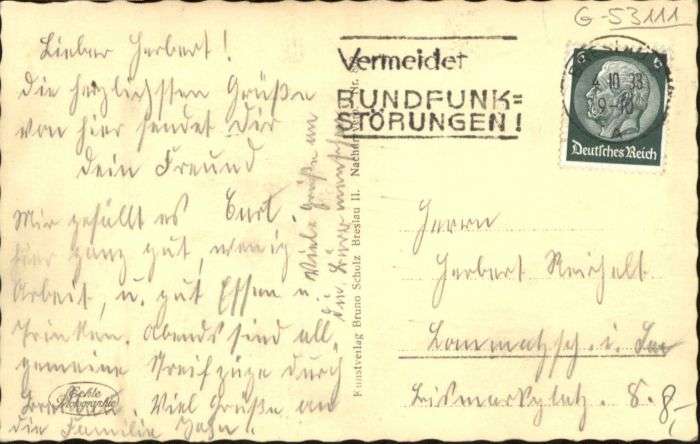 G-53111
Lieber Herbert!
die herzlichsten Grüße
von hier sendet Dir
dein Freund
Carl.
Mir gefällt es
hier ganz gut, wenig
Arbeit, u. gut Essen u.
Trinken. Abends sind all-
gemeine Streifzüge durch
Viel Grüße an
die Familie
Viele Grüße an
die
Echte Photographie
Vermeidet
RUNDFUNK=
STÖRUNGEN!
BRESLAU
4.10.33
9-10
a
Deutsches Reich
Kunstverlag Bruno Scholz Breslau II.
Herrn
Herbert Reichelt
Lommatzsch i. Sa
Bismarkplatz. 8.
8,-